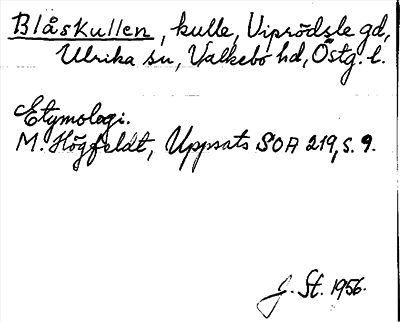 Blåskullen, kulle, Viprödsle gd,
Ulrika sn, Valkebo hd, Östg. l.
Etymologi.
M. Högfeldt, Uppsats SOA 219, s. 9.
J. St. 1956.